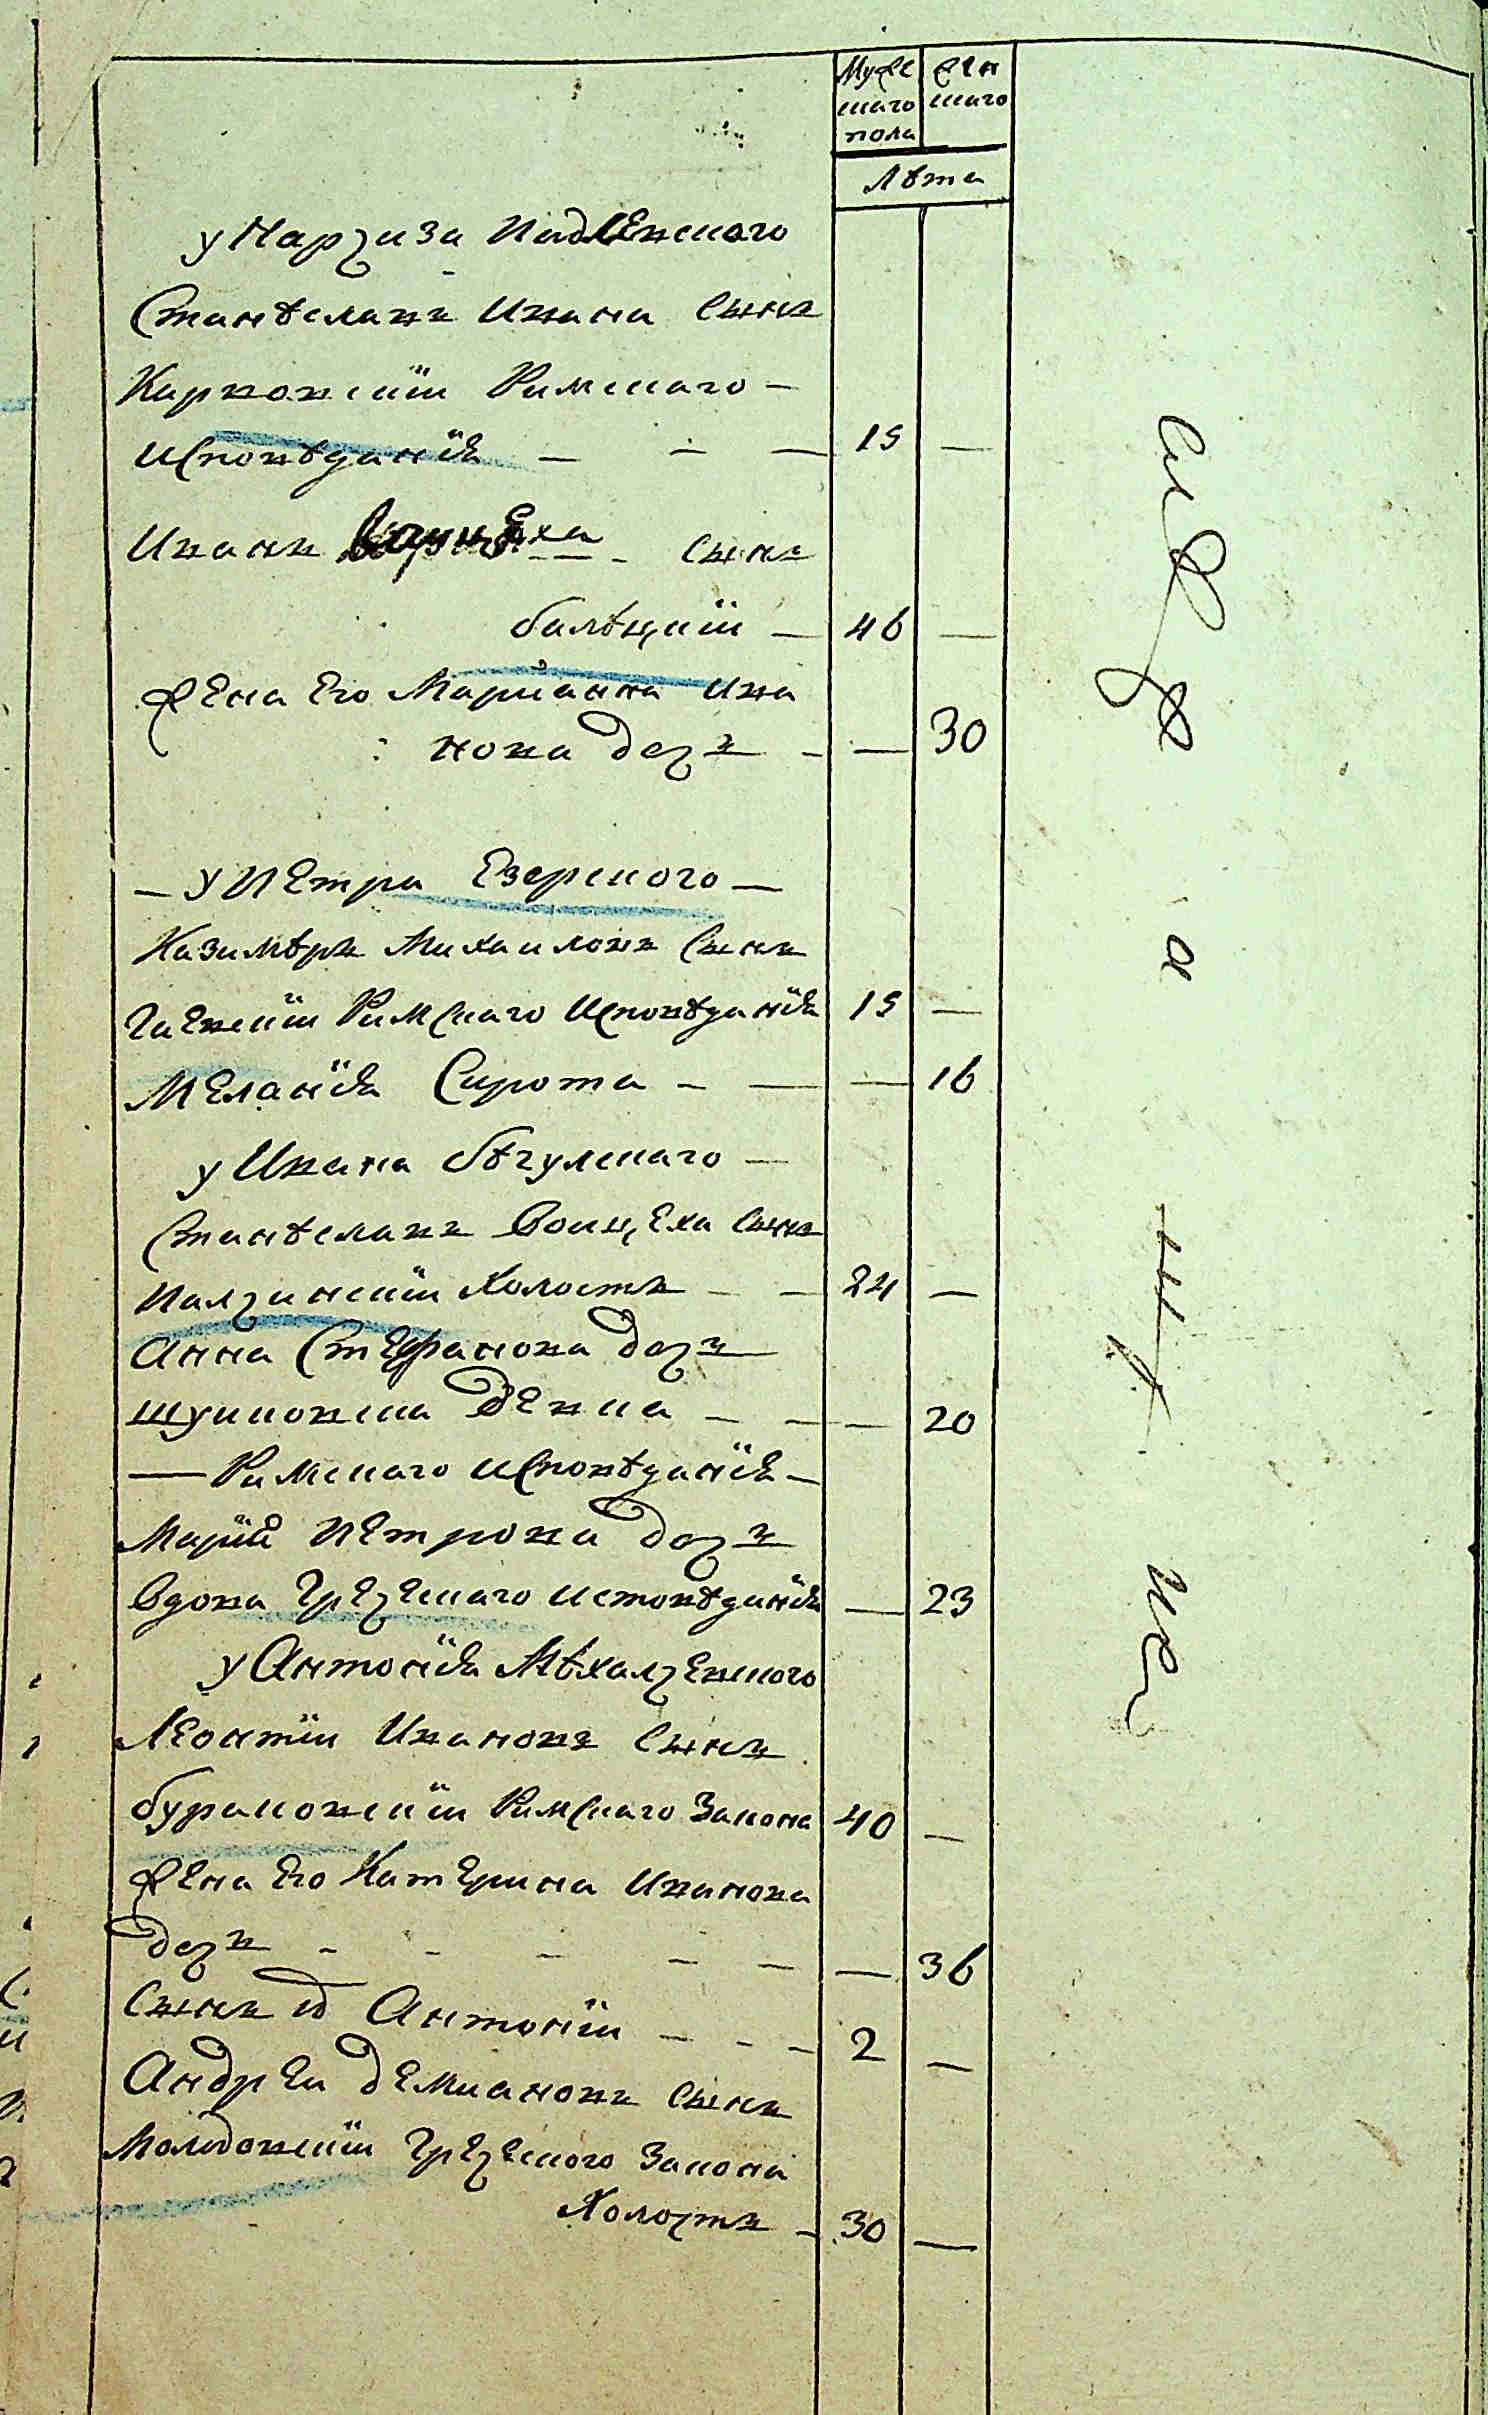 Мужескаго пола
Женскаго
Лѣта
у Нарциза Падлевскаго
Станѣславъ Ивана Сынъ
Карковскiй Римскаго —
исповѣданiя — — — 15 —
Иванъ Сынъ
балѣцкiй — 46 —
жена Его Марiанна Ива
нова дочъ — — 30
— у Петра Езерского —
Казимѣръ Михаиловъ Сынъ
Гаевскiй Римскаго Исповѣданiя 15 —
Меланiя Сирота — — — 16
у Ивана бѣгулскаго —
Станѣславъ Воицеха Сынъ
Палчинскiй Холостъ — — 24 —
Анна Стефанова дочъ
шуиковска дѣвка — — — 20
— Римскаго исповѣданiя —
Марiя Петрова дочъ
Вдова Греческаго исповѣданiя — 23
у Антонiя Мѣхалчевского
Леонтiй Ивановъ Сынъ
бураковскiй Римскаго Закона 40 —
жена Его Катерина Иванова
дочъ — — — — — — 36
Сынъ Антонiй — — — 2 —
Андреи демиановъ Сынъ
Молдовскiй Греческого Закона
Холостъ — 30 —